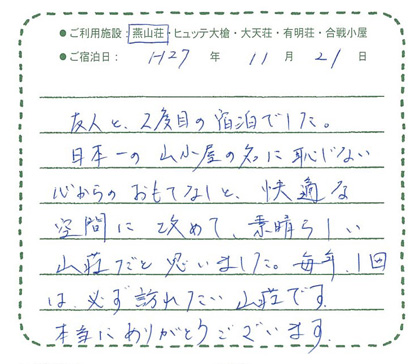 ●ご利用施設：燕山荘・ヒュッテ大槍・大天荘・有明荘・合戦小屋
●ご宿泊日： H27 年 11 月 21 日
友人と、2度目の宿泊でした。
日本一の山小屋の名に恥じない
心からのおもてなしと、快適な
空間に改めて、素晴らしい
山荘だと思いました。毎年、1回
は、必ず訪れたい山荘です。
本当にありがとうございます。